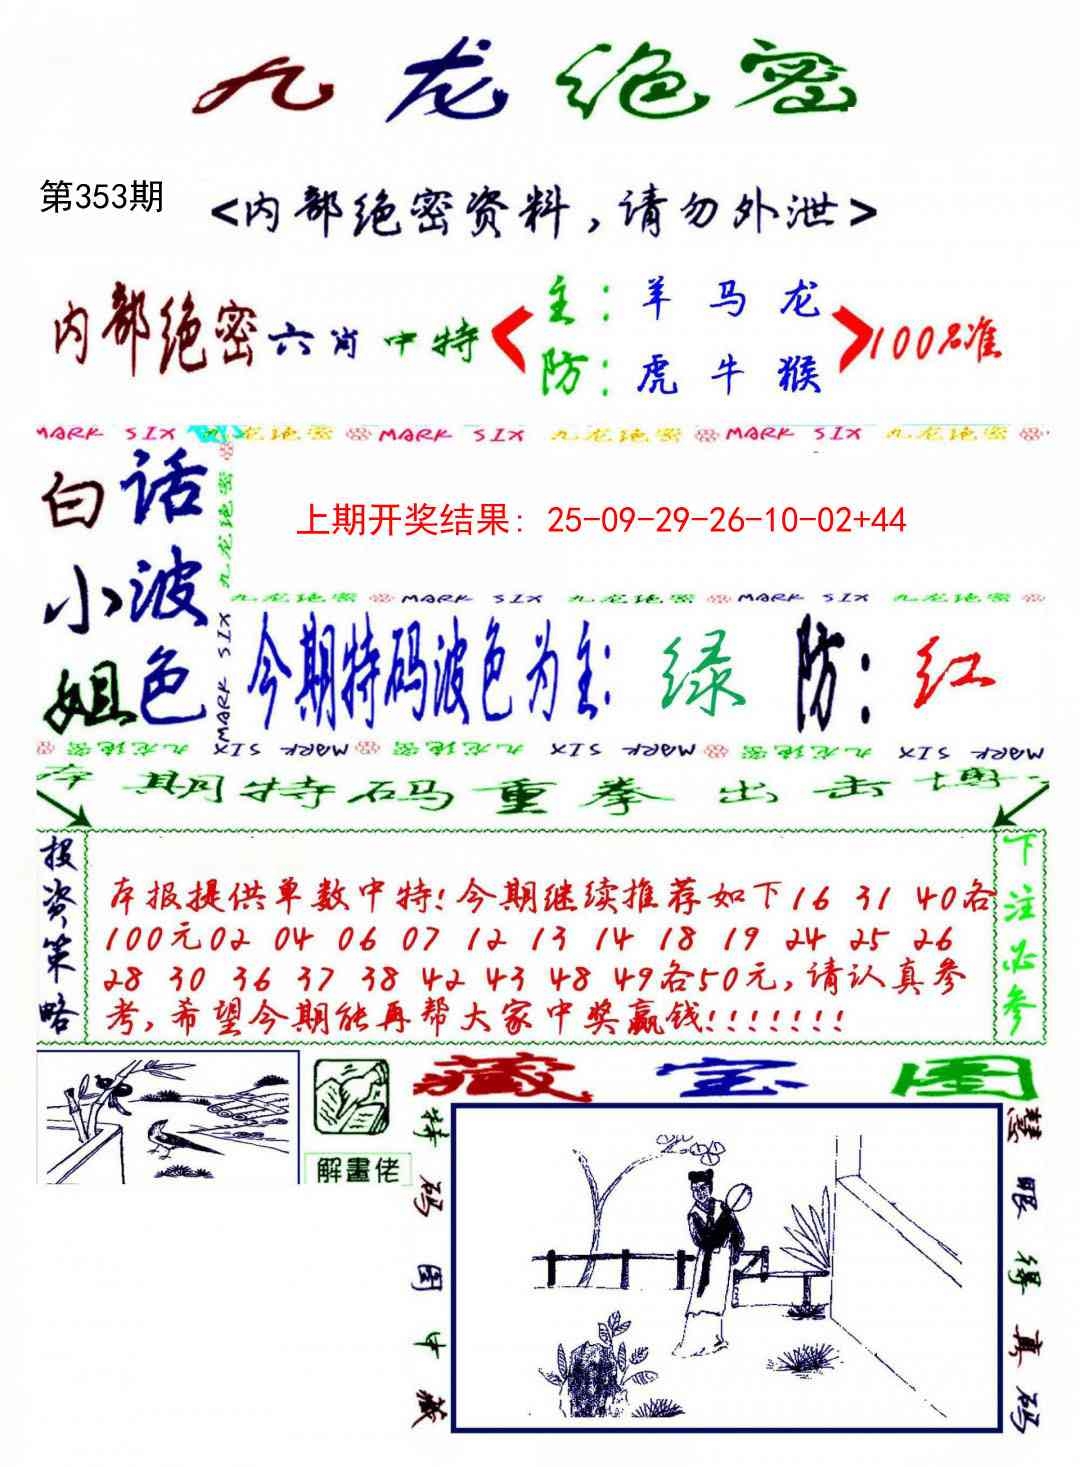 九龙绝密
第353期
<内部绝密资料,请勿外泄>
内部绝密六肖中特
主:羊 马 龙
防:虎 牛 猴
100%准
MARK SIX 九龙绝密 MARK SIX 九龙绝密 MARK SIX 九龙绝密
九龙绝密
MARK SIX
白话
小波
姐色
上期开奖结果: 25-09-29-26-10-02+44
九龙绝密 MARK SIX 九龙绝密 MARK SIX 九龙绝密
今期特码波色为主:绿 防:红
九龙绝密 MARK SIX 九龙绝密 MARK SIX 九龙绝密 MARK SIX
本期特码重拳出击博
投资策略
本报提供单数中特!今期继续推荐如下16 31 40各
100元02 04 06 07 12 13 14 18 19 24 25 26
28 30 36 37 38 42 43 48 49各50元,请认真参
考,希望今期能再帮大家中奖赢钱!!!!!!!
下注必参
解畫佬
藏宝图
特码图中藏
慧眼得真码